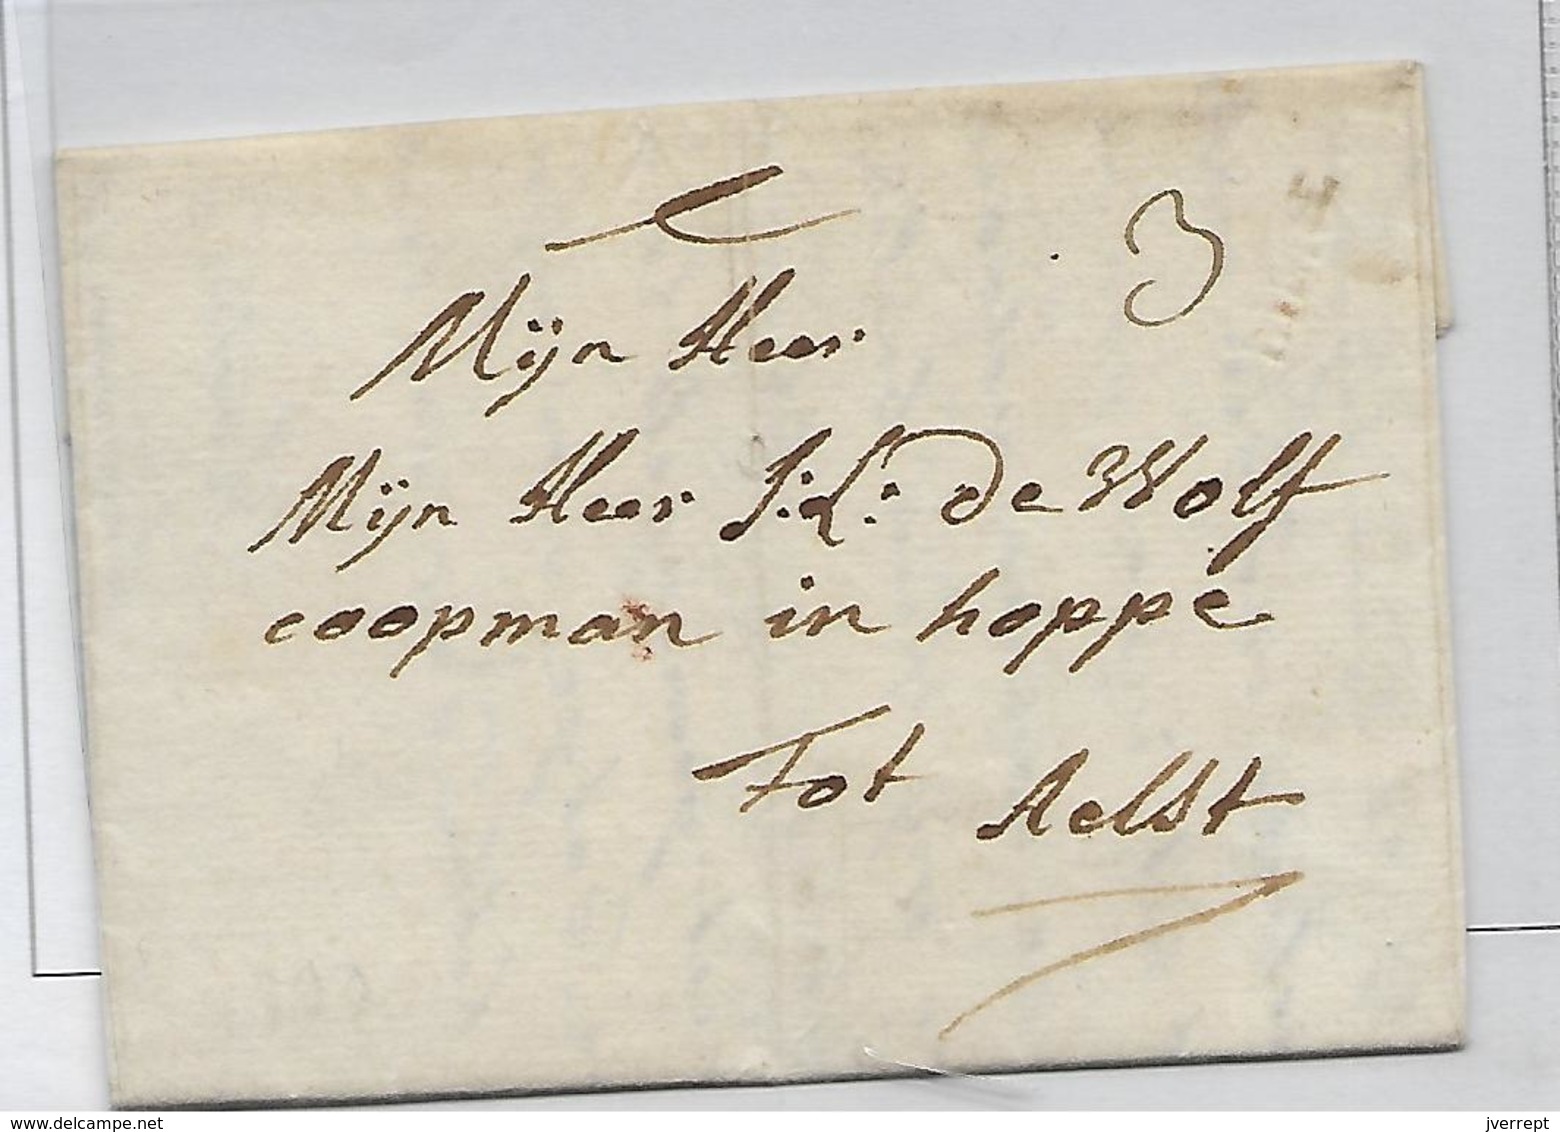 3
Mijn Heer
Mijn Heer J: L: de Wolf
coopman in hoppe
Tot Aelst
delcampe.net
jverrept